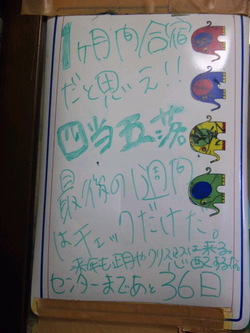 1ヶ月間合宿
だと思え!!
四当五落
最後の1週間
はチェックだけだ。
来年も正月やクリスマスは来る。
心配するな
センターまであと36日